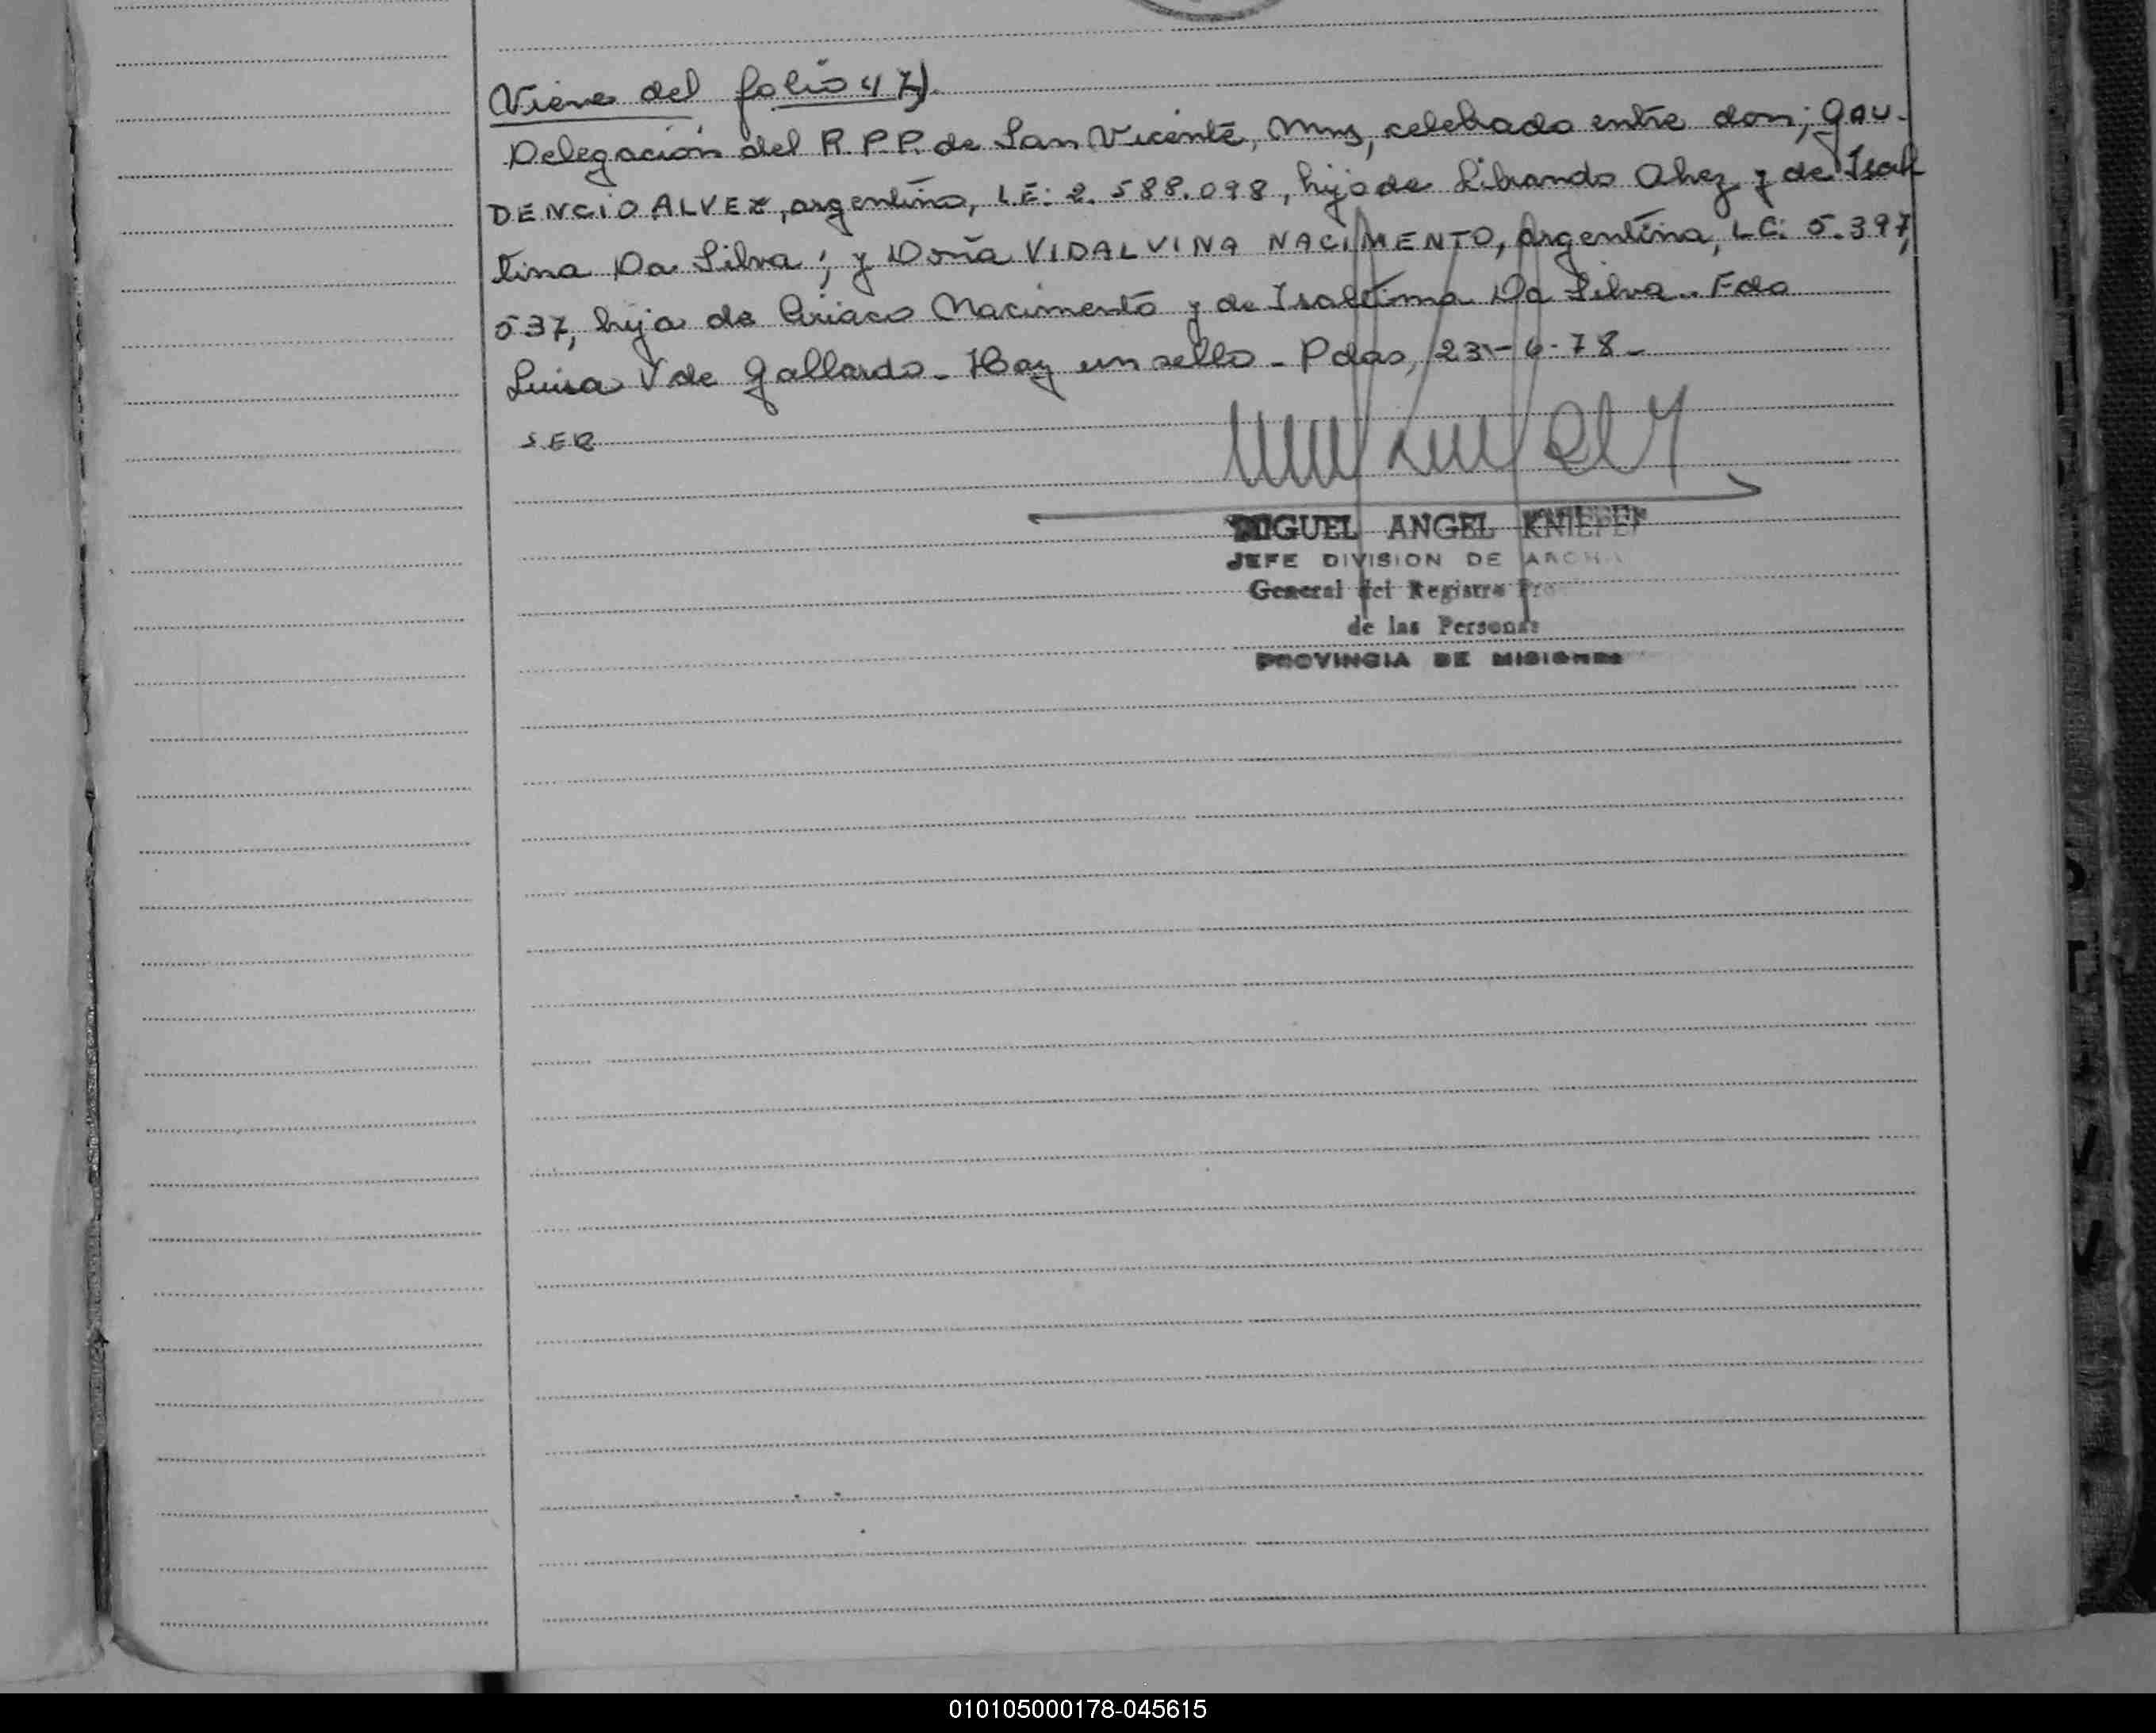 Viene del folio 47).
Delegación del R.P.P. de San Vicente, Mns, celebrado entre don; GAU-
DENCIO ALVEZ, argentino, L.E: 2.588.098, hijo de Librando Alvez y de Isal
tina Da Silva; y Doña VIDALVINA NACIMENTO, argentina, LC: 5.397,
537, hija de Ciriaco Nacimento y de Isaltina Da Silva.. Fdo
Luisa V de Gallardo - Hay un sello - Pdas, 23-6-78-
SER
MIGUEL ANGEL
JEFE DIVISION DE
General del Registro
de las Personas
PROVINCIA DE MISIONES
010105000178-045615